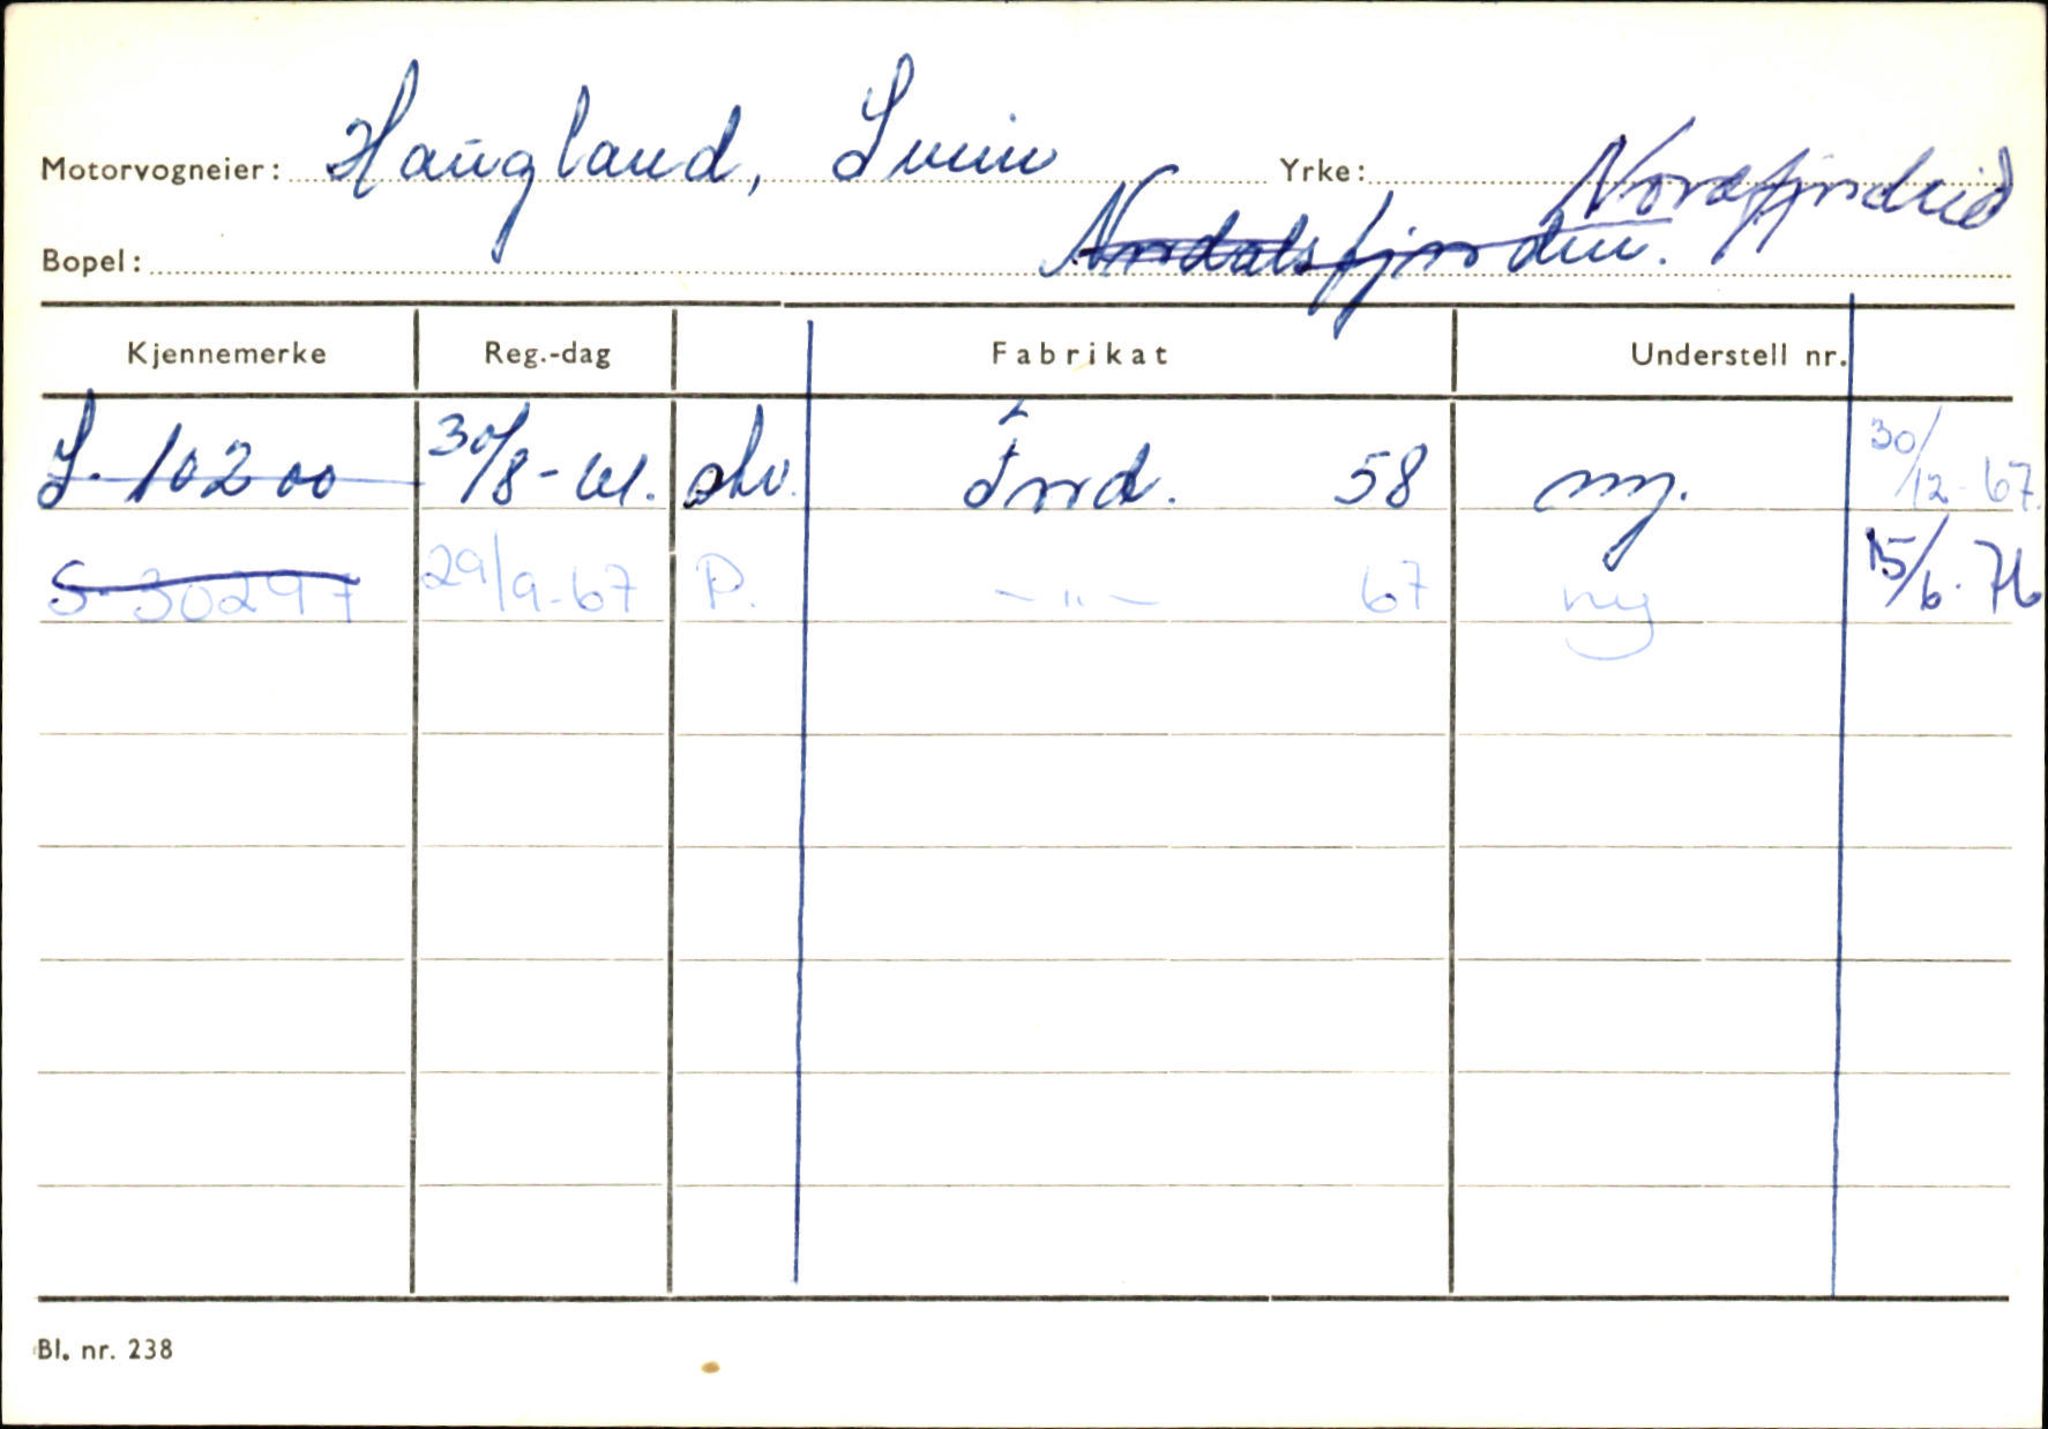 Motorvogneier: Haugland, Svein Yrke: Nordfjordeid
Bopel: Nordalsfjorden.
Kjennemerke Reg.-dag Fabrikat Understell nr.
S. 10200 30/8-61. Lv. Ford. 58 ny. 30/12-67.
S-30297 29/9-67 P. -"- 67 ny 15/6-76
Bl. nr. 238